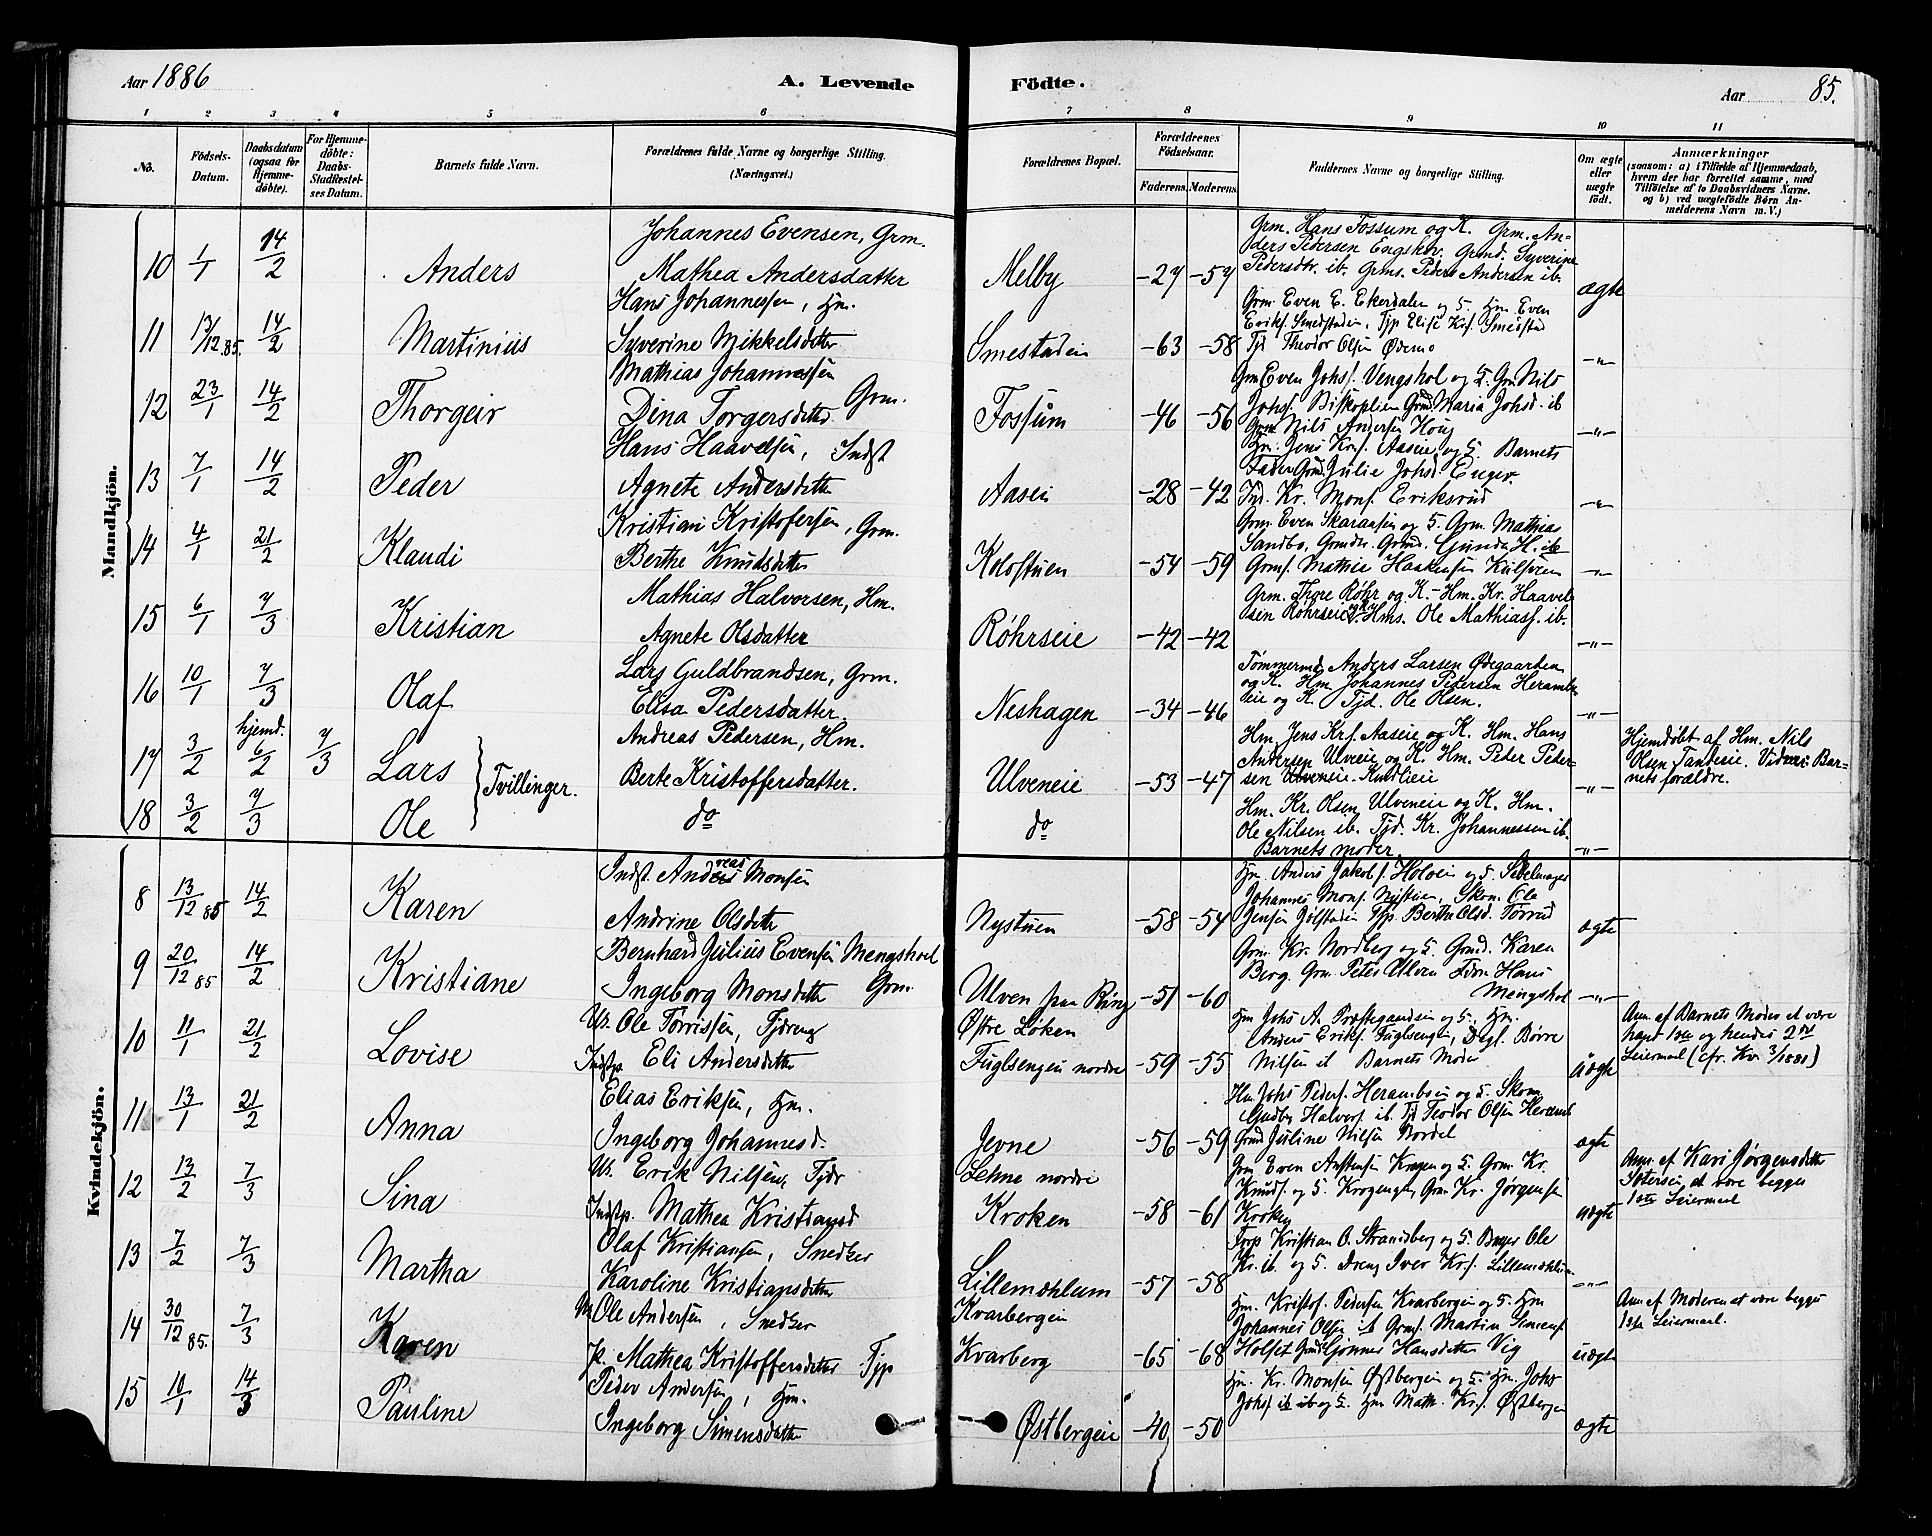 Aar 1886
A. Levende
Födte.
Aar 85.
1 2 3 4 5 6 7 8 9 10 11
No.
Födsels-Datum.
Daabsdatum (ogsaa for Hjemmedöbte).
For Hjemmedöbte: Daabs-Stadfæstelses Datum.
Barnets fulde Navn.
Forældrenes fulde Navne og borgerlige Stilling. (Næringsvei.)
Forældrenes Bopæl.
Forældrenes Födselsaar.
Faderens. Moderens.
Faddernes Navne og borgerlige Stilling.
Om ægte eller uægte födt.
Anmærkninger
(saasom: a) i Tilfælde af Hjemmedaab, hvem der har forrettet samme, med Tilföielse af to Daabsvidners Navne. og b) ved uægtefödte Börn Anmelderens Navn m. V.)
Mandkjön.
10 1/1 14/2 Anders
Johannes Evensen, Grm.
Mathea Andersdatter
Melby -27 -57
Grm. Hans Fossum og K. Grm. An-
ders Pedersen Engskov. Grmd. Syverine
Pedersdtr. ib. Grms. Peder Andersen ib.
ægte
11 13/12.85. 14/2 Martinius
Hans Johannessen, Hm.
Syverine Mikkelsdatter
Smestadein -63 -58
Grm Even E. Ekerdalen og 5. Hm. Even
Eriks. Smedstadein, Tjp Elise Krs. Smedstad
Tjd Theodor Olsen Ødemo
-"-
12 23/1 14/2 Thorgeir
Mathias Johannessen
Dina Torgersdatter Grm.
Fossum -46 -56
Grm Even Johs. Vengshol og 5. Grm Nils
Johs. Biskoplien Grmd Maria Johsd. ib
Grm Nils Andersen Houg
-"-
13 7/1 14/2 Peder
Hans Haavelsen, Indst
Agnete Andersdatter
Aasein -28 -42
Hm. Jens Krs. Aaseie og 5. Barnets
Fader Grmd. Julie Johsd Enger.
Ind. Kr. Mons. Eriksrud
-"-
14 4/1 21/2 Klaudi
Kristian Kristofersen, Grm.
Berthe Knudsdatter
Kolostuen -54 -59
Grm. Even Skaransen og 5. Grm. Mathias
Sandbo, Grmd. Gunda H. ib
Grms. Mathie Haakensen
-"-
15 6/1 7/3 Kristian
Mathias Halvorsen, Hm.
Agnete Olsdatter
Røhrseie -42 -42
Grm. Thore Røhr og K. - Hm. Kr. Haavel-
sen Røhrseie og K. Hms. Ole Mathiass. ib.
-"-
16 10/1 7/3 Olaf
Lars Guldbrandsen, Grm.
Elisa Pedersdatter
Neshagen -34 -46
Tømmermd. Anders Larsen Ødegaarden
og K. Hm Johannes Pedersen Heramb-
eie og K. Tjd. Ole Olsen.
-"-
17 3/2 hjemd. 6/2 7/3 Lars Tvillinger.
Andreas Pedersen, Hm.
Berte Kristoffersdatter.
Ulveneie -53 -47
Hm. Jens Krs. Aaseie og K. Hm. Hans
Andersen Ulveie og K. Hm. Peder Peder-
sen Ulveneie.
-"-
Hjemdøbt af Hm. Nils
Olsen Sandeie. Vidner: Bar-
nets forældre.
18 3/2 7/3 Ole
do
do
Hm. Kr. Olsen Ulveneie og K. Hm.
Ole Nilsen ib. Tjd. Kr. Johannessen ib.
Barnets moder
-"-
Kvindekjön.
8 13/12 85 14/2 Karen
Indst. Andreas Monsen
Andrine Olsdatter
Nystuen -58 -54
Hm. Anders Jakobs. Holvein og 5. Sedelmager
Johannes Mons. Nystuen, Skom. Ole
Jensen Jølstadein Tjp. Berthe Olsd. Torrud
ægte
9 20/12 85 14/2 Kristiane
Bernhard Julius Evensen Mengshoel
Ingeborg Monsdatter Grm.
Ulven paa Ring -51 -60
Grm. Kr. Nordberg og 5. Grmd. Karen
Berg. Grm Peter Ulven Hans
Mengshol
-"-
10 11/1 21/2 Lovise
U. Ole Torrissen, Tjdreng
Indstp. Eli Andersdatter
Østre Løken
Fuglsengen nordre -59 -55
Hm Johs A. Præstegaardsein og 5. Hm.
Anders Eriks. Fuglsengen, Dagl. Børre
Nilsen ib Barnets Moder
uægte
Anm. af Barnets Moder at være
hans 1ste og hendes 2det
Leiermaal (cfr. Kv. 3/1881)
11 13/1 21/2 Anna
Elias Eriksen, Hm.
Ingeborg Johannesd.
Jevne -56 -59
Hm Johs Peders. Herambsein og 5. Skom.
Gudbr. Halvors. ib. Tjd Teodor Olsen Heramb
Grmd Juline Nilsen Bordel
ægte
12 13/2 7/3 Sina
U. Erik Nilsen, Tjdr
Indstp. Mathea Kristiansd
Lehne nordre
Kroken -58 -61
Grm Even Austensen Krogen og 5. Grm. Kr.
Knuds. og 5. Krogengen, Grm Kr. Jørgensen
Kroken
uægte
Anm. af Kari Jørgensdatter
at være begges
1ste Leiermaal
13 7/2 7/3 Martha
Olaf Kristiansen, Snedker
Karoline Kristiansdatter
Lillemæhlum -57 -58
Torp Kristian O. Strandberg og 5. Bager Ole
Kr. ib. og 5. Dreng Iver Krs. Lillemæhlum
-"-
14 30/12 85. 7/3 Karen
U. Ole Andersen, Snedker
p. Mathea Kristoffersdatter Tjp
Kvarbergein
Kvarberg -65 -68
Hm. Kristof. Pedersen Kvarbergein og 5. Hm
Johannes Olsen ib Grms. Martin Simens.
Holset Grmd Gjønnes Hansdatter Vig
uægte
Anm. af Moderen at være begges
1ste Leiermaal.
15 10/1 14/3 Pauline
Peder Andersen, Hm.
Ingeborg Simensdatter
Østbergein -40 -50
Hm. Kr. Monsen Østbergein og 5. Hm. Johs
Johs. ib og 5. Hm Math. Krs. Østbergein
ægte